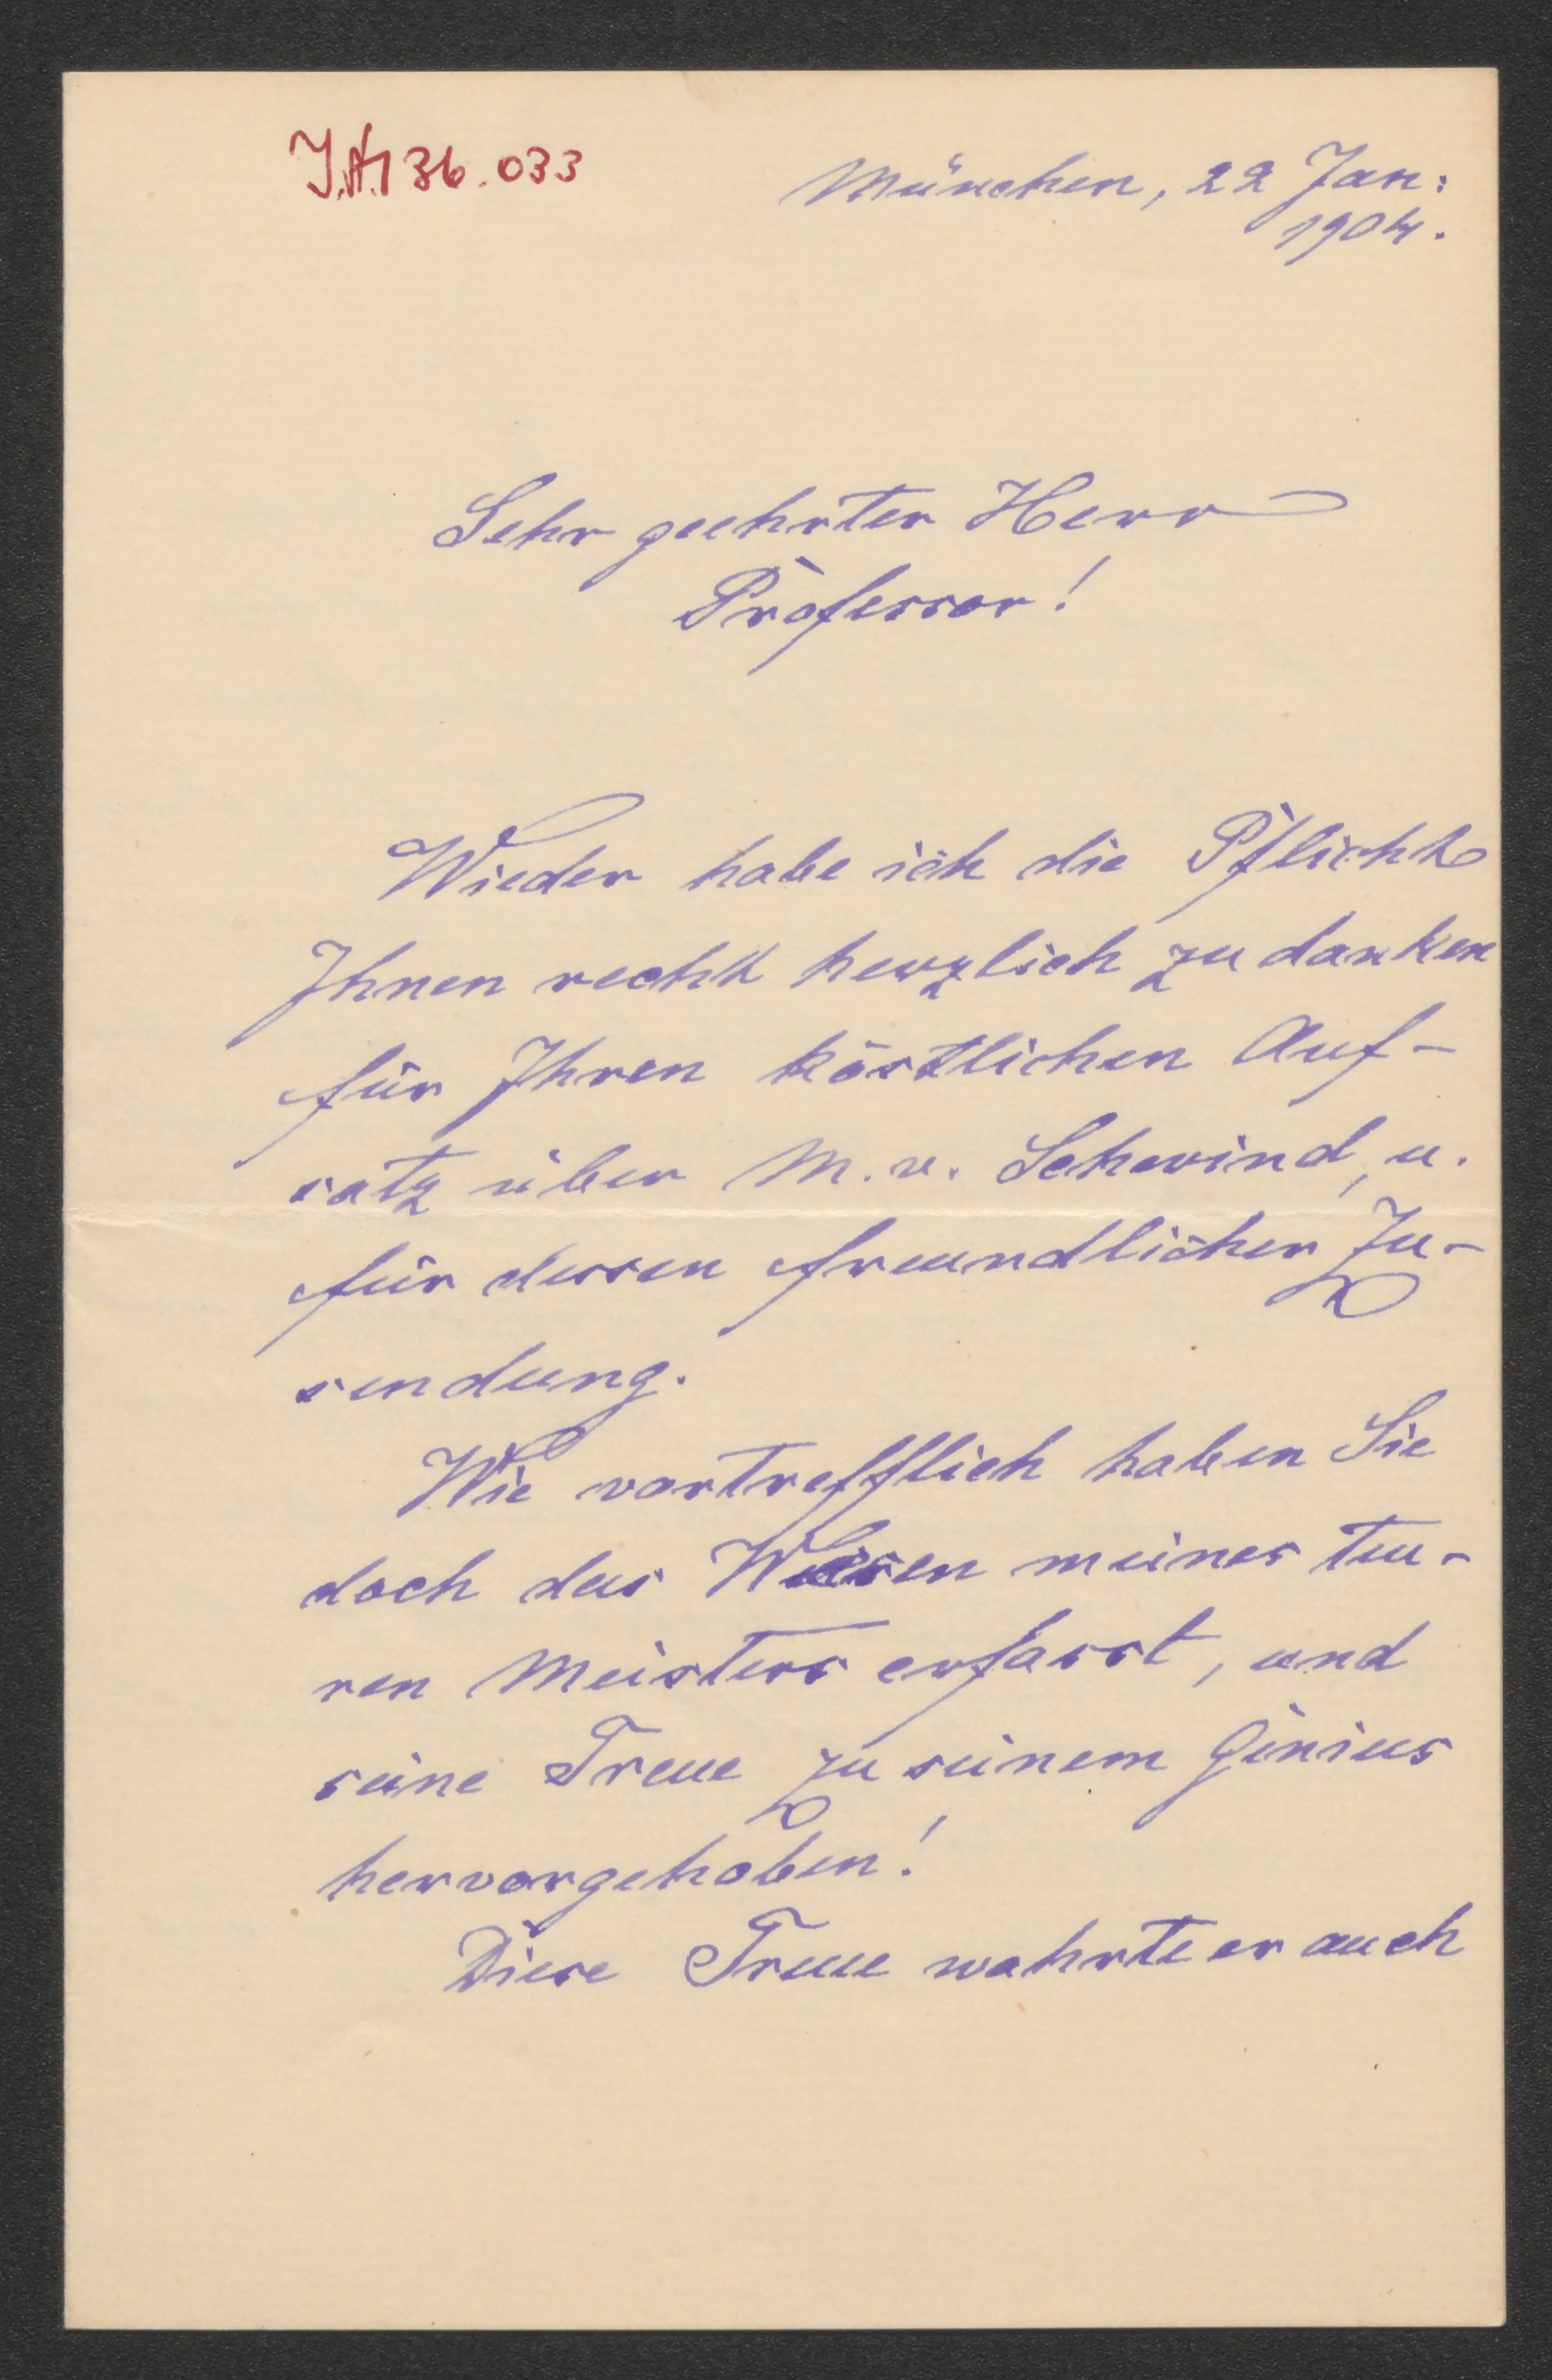 J.N. 136.033
München, 22 Jan:
1904.
Sehr geehrter Herr
Professor!
Wieder habe ich die Pflicht
Ihnen recht herzlich zu danken
für Ihren köstlichen Auf-
satz über M. v. Schwind, u.
für dessen freundlicher Zu-
sendung.
Wie vortrefflich haben Sie
doch das Wesen meines teu-
ren Meisters erfasst, und
seine Treue zu seinem Genius
hervorgehoben!
Diese Treue wahrte er auch